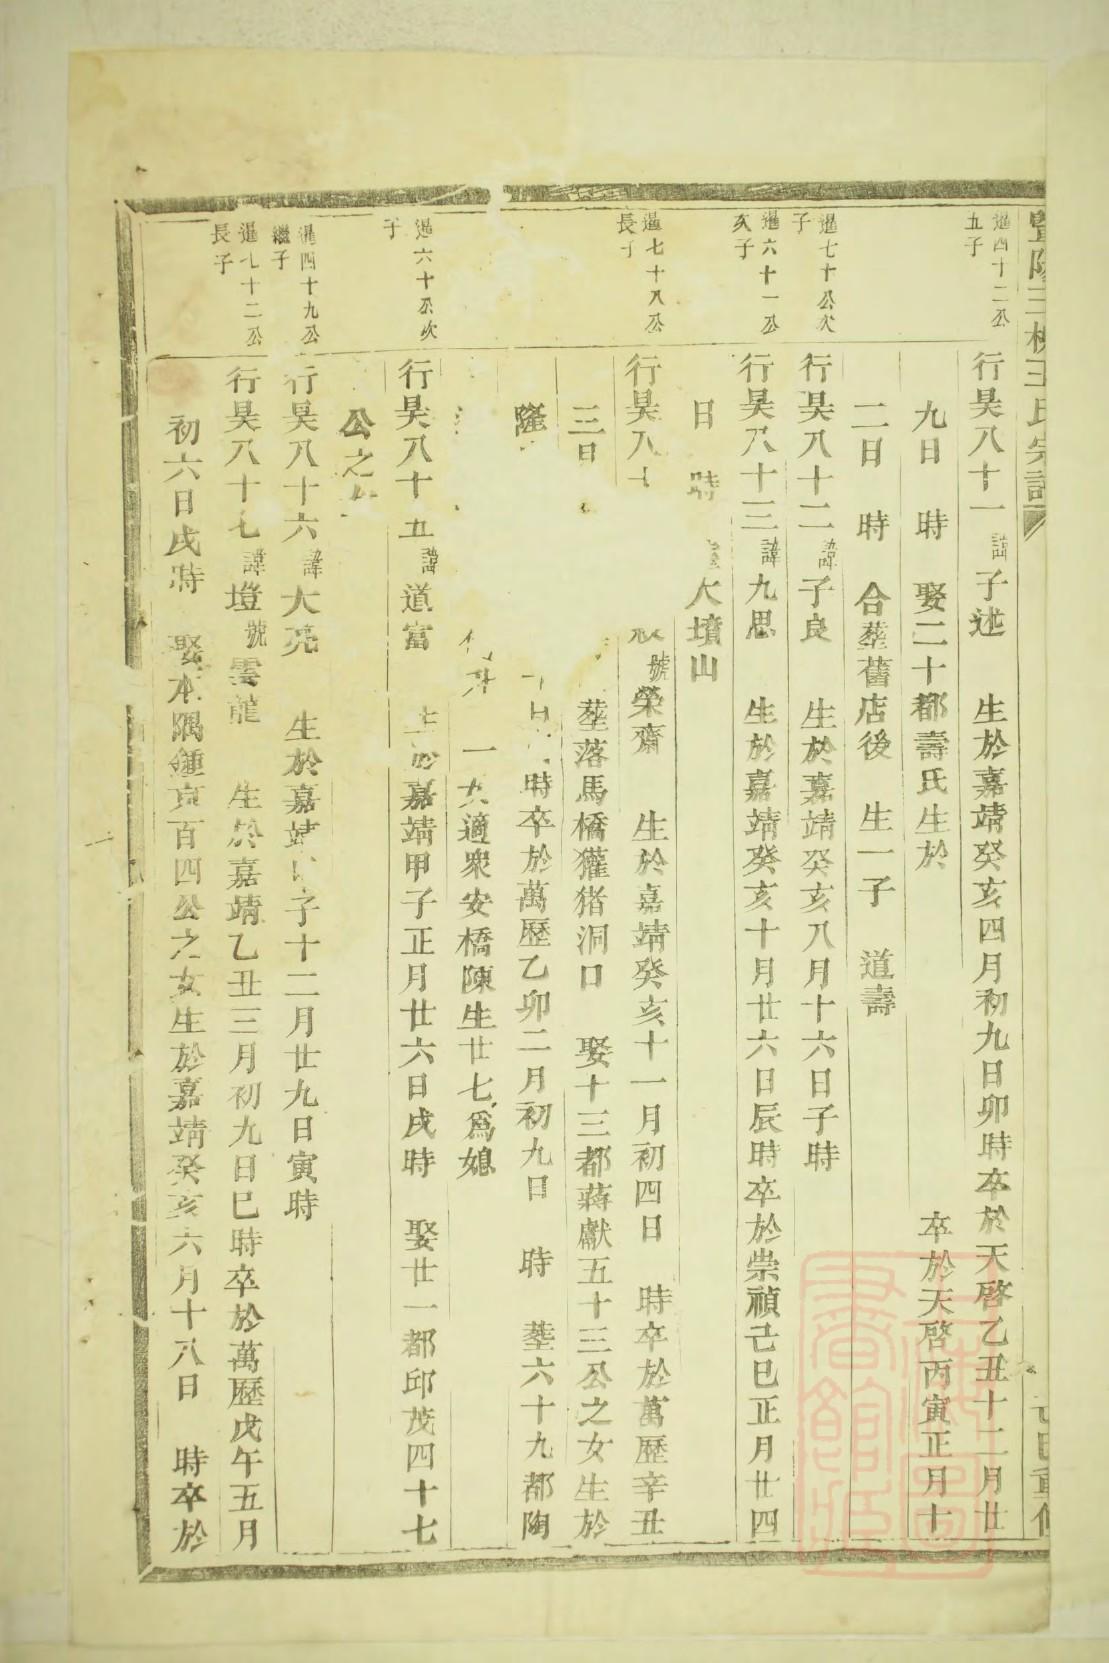 暹四十二公
五子
行昊八十一 諱子述 生於嘉靖癸亥四月初九日卯時卒於天啓乙丑十二月廿
九日 時 娶二十都壽氏生於 卒於天啓丙寅正月十
二日 時 合塟舊店後 生一子 道壽
暹七十公次
子
行昊八十二 諱子良 生於嘉靖癸亥八月十六日子時
暹六十一公
次子
行昊八十三 諱九思 生於嘉靖癸亥十月廿六日辰時卒於崇禎己巳正月廿四
日 時 大墳山
暹七十八公
長子
行昊八十 號榮齋 生於嘉靖癸亥十一月初四日 時卒於萬歷辛丑
三日 塟落馬橋獾猪洞口 娶十三都蔣獻五十三公之女生於
隆 時卒於萬歷乙卯二月初九日 時 塟六十九都陶
一女適衆安橋陳生廿七爲媳
暹六十公次
子
行昊八十五 諱道富 生於嘉靖甲子正月廿六日戌時 娶廿一都邱茂四十七
公之女
暹四十九公
繼子
行昊八十六 諱大亮 生於嘉靖 子十二月廿九日寅時
暹七十二公
長子
行昊八十七 諱璒 號雲龍 生於嘉靖乙丑三月初九日巳時卒於萬歷戊午五月
初六日戌時 娶本隅鍾 百四公之女生於嘉靖癸亥六月十八日 時卒於